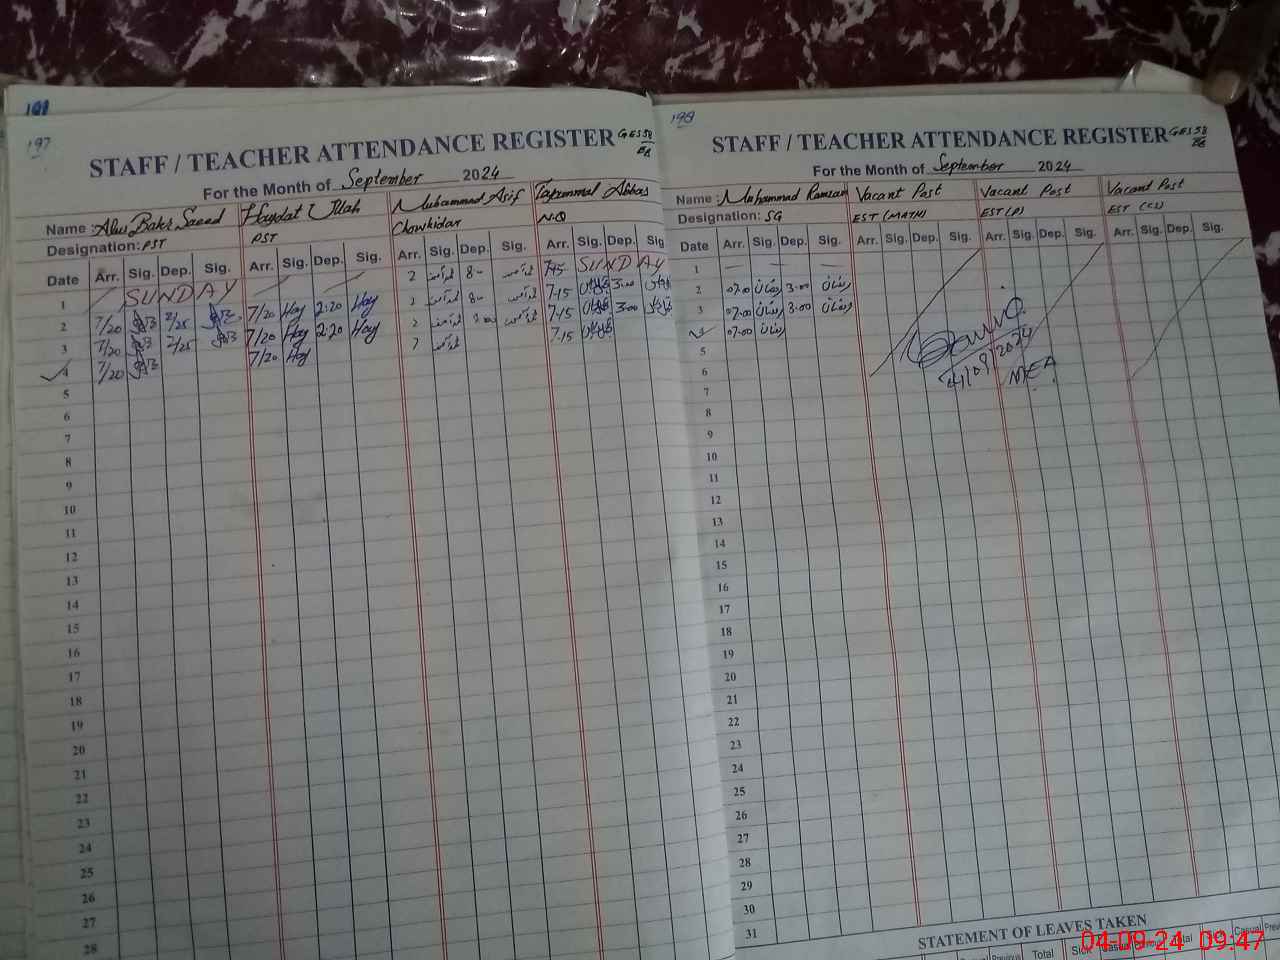 191
197
STAFF / TEACHER ATTENDANCE REGISTER GES 58
For the Month of September 2024
Name : Abu Bakr Saeed Haydat Ullah Muhammad Asif Tajammal Abbas
Designation: PST PST Chowkidar N.Q
Date Arr. Sig. Dep. Sig. Arr. Sig. Dep. Sig. Arr. Sig. Dep. Sig. Arr. Sig. Dep. Sig.
1 SUNDAY 2 8-- 7-15 SUNDAY
2 7/20 2/25 7/20 Hay 2:20 Hay 8-- 7-15 3:00
3 7/20 2/25 7/20 Hay 2:20 Hay 2 7-15 3:00
4 7/20 7/20 Hay 7 7-15
5
6
7
8
9
10
11
12
13
14
15
16
17
18
19
20
21
22
23
24
25
26
27
28
198
STAFF / TEACHER ATTENDANCE REGISTER GES 58
For the Month of September 2024
Name : Muhammad Ramzan Vacant Post Vacant Post Vacant Post
Designation: SG EST (MATH) EST (P) EST (CS)
Date Arr. Sig. Dep. Sig. Arr. Sig. Dep. Sig. Arr. Sig. Dep. Sig. Arr. Sig. Dep. Sig.
1 — — — —
2 07.00 رمضان 3.00 رمضان
3 07.00 رمضان 3.00 رمضان
07.00 رمضان
5
6
7
8
9
10
11
12
13
14
15
16
17
18
19
20
21
22
23
24
25
26
27
28
29
30
31
4/09/2024
MEA
STATEMENT OF LEAVES TAKEN
Previous Total Sick Casual Total Casual
04-09-24 09:47